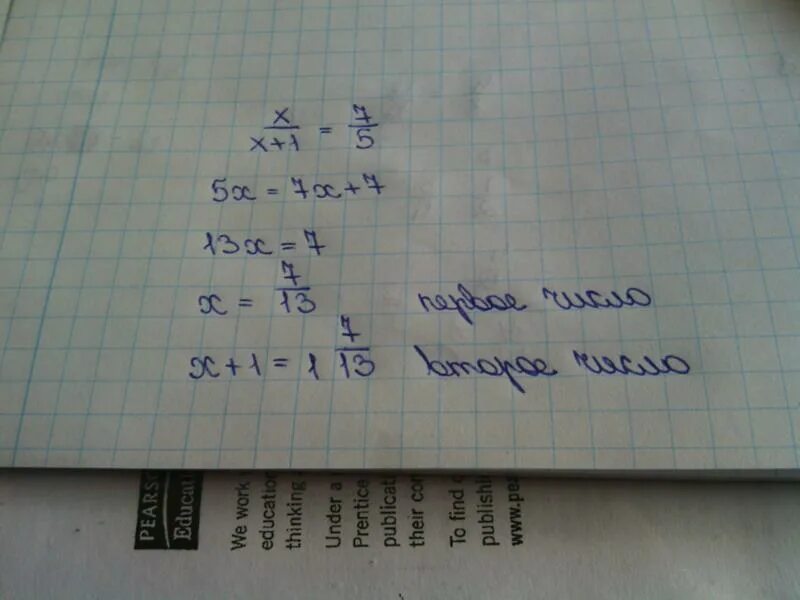 x/x+1 = 7/5
5x = 7x+7
13x = 7
x = 7/13 первое число
x+1 = 1 7/13 второе число
PEARSO
Educati
We work
education
thinking
Under a
Prentice
publicat
their con
To find
publishi
www.pea